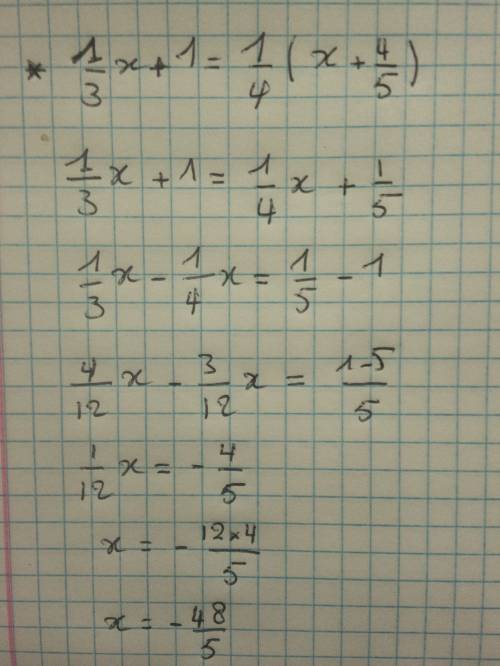 * 1/3 x + 1 = 1/4 ( x + 4/5 )
1/3 x + 1 = 1/4 x + 1/5
1/3 x - 1/4 x = 1/5 - 1
4/12 x - 3/12 x = 1-5/5
1/12 x = - 4/5
x = - 12×4/5
x = - 48/5